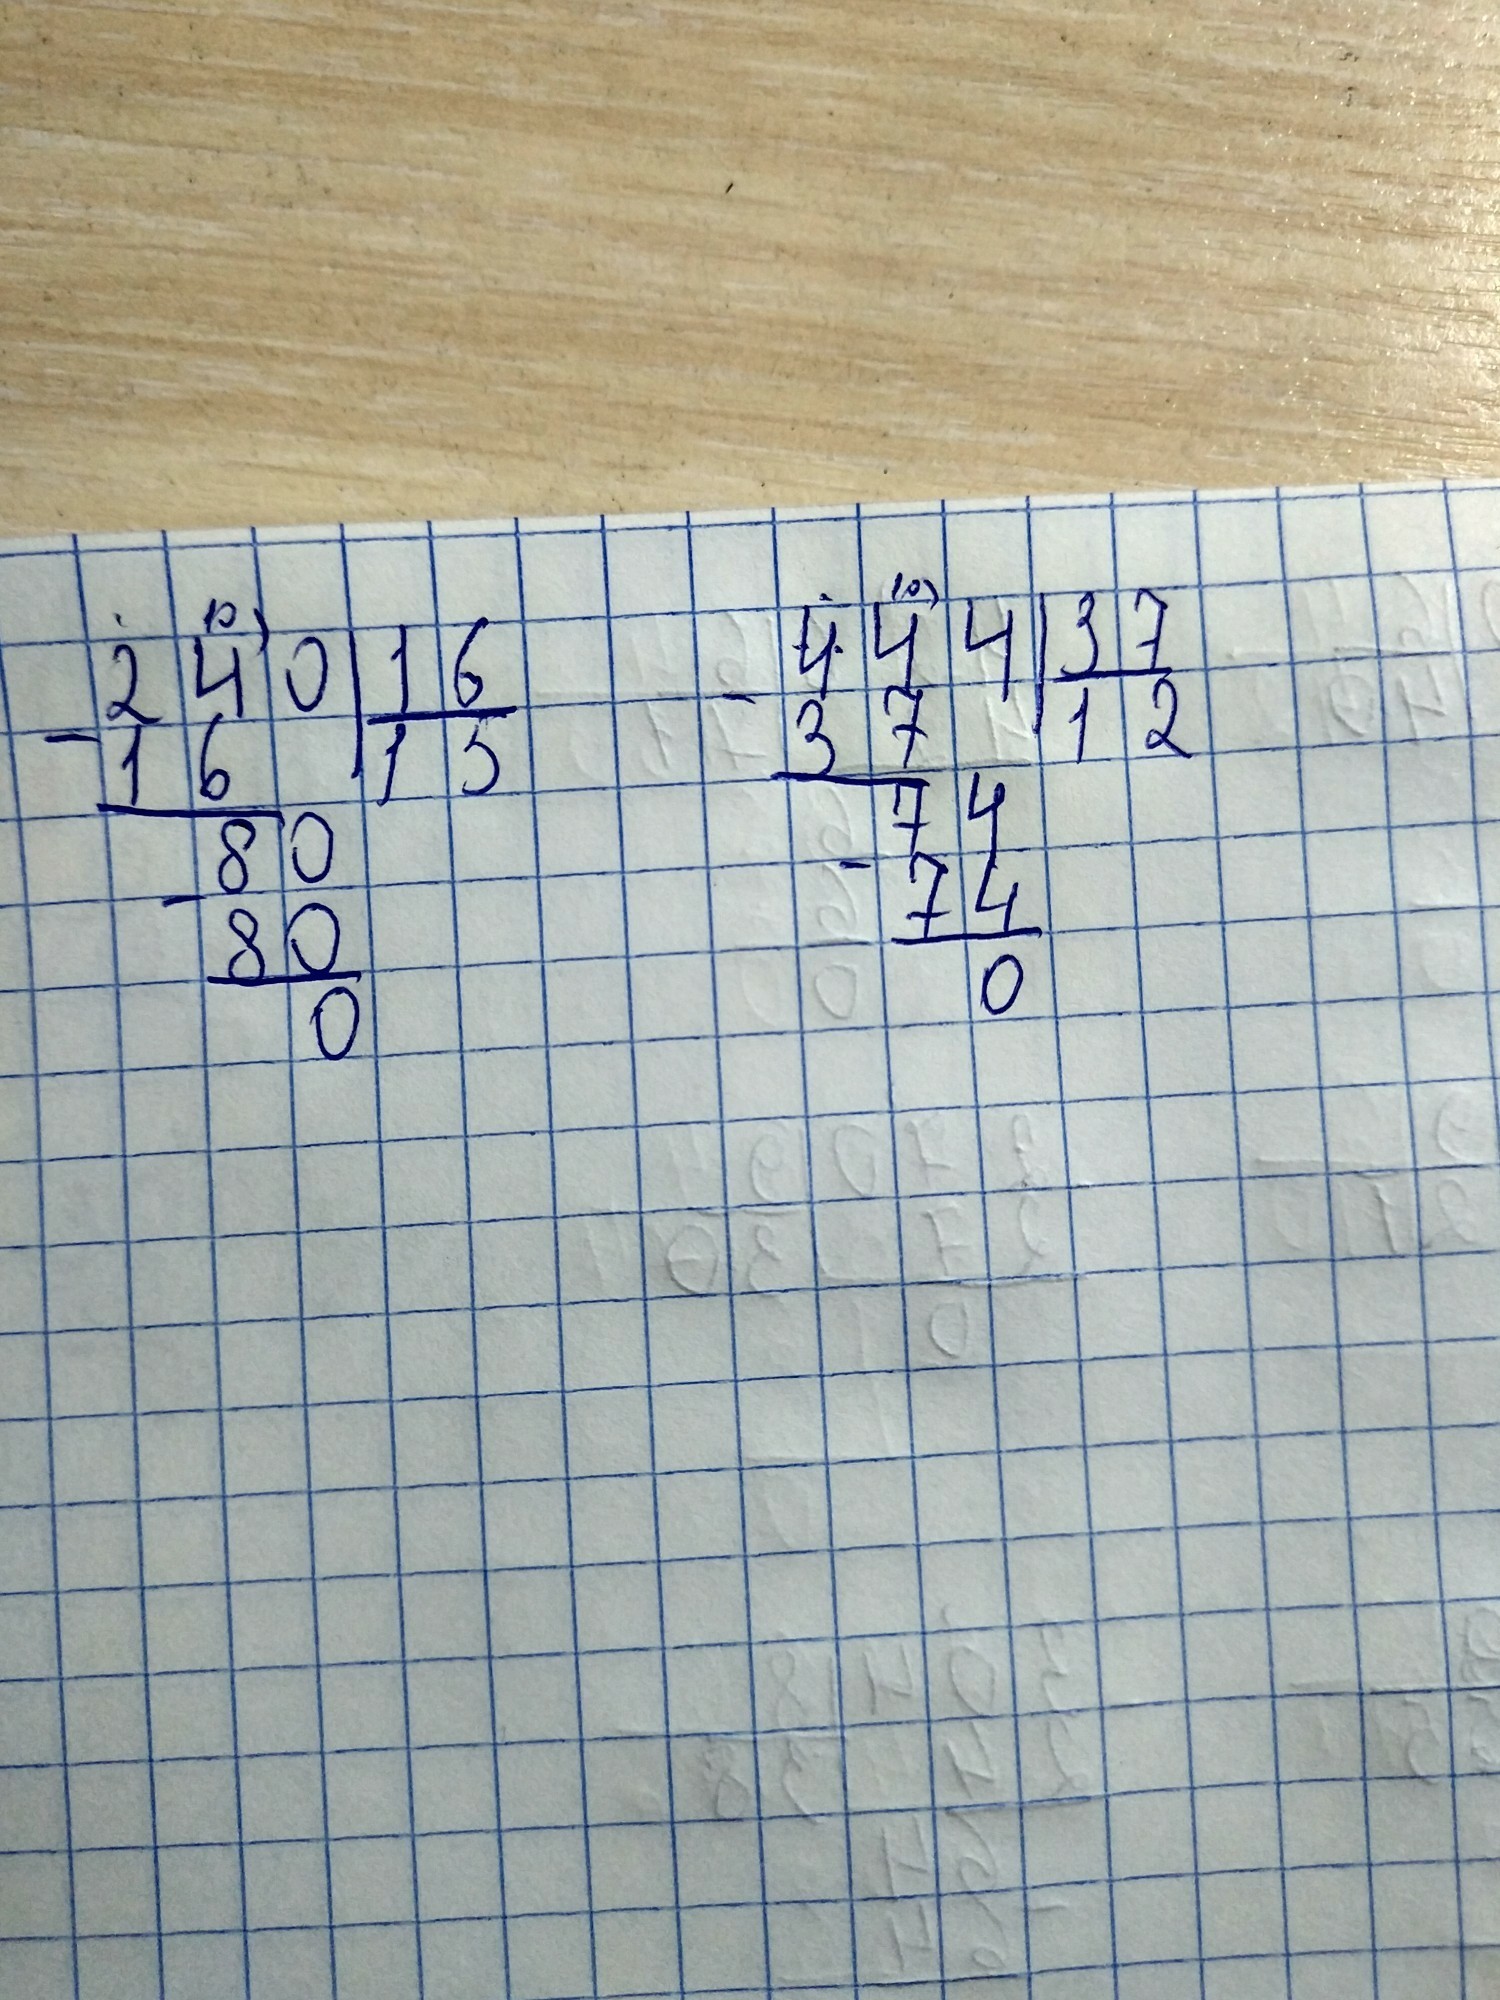 10
240|16
-16 |15
80
-80
0
10
444|37
-37 |12
74
-74
0